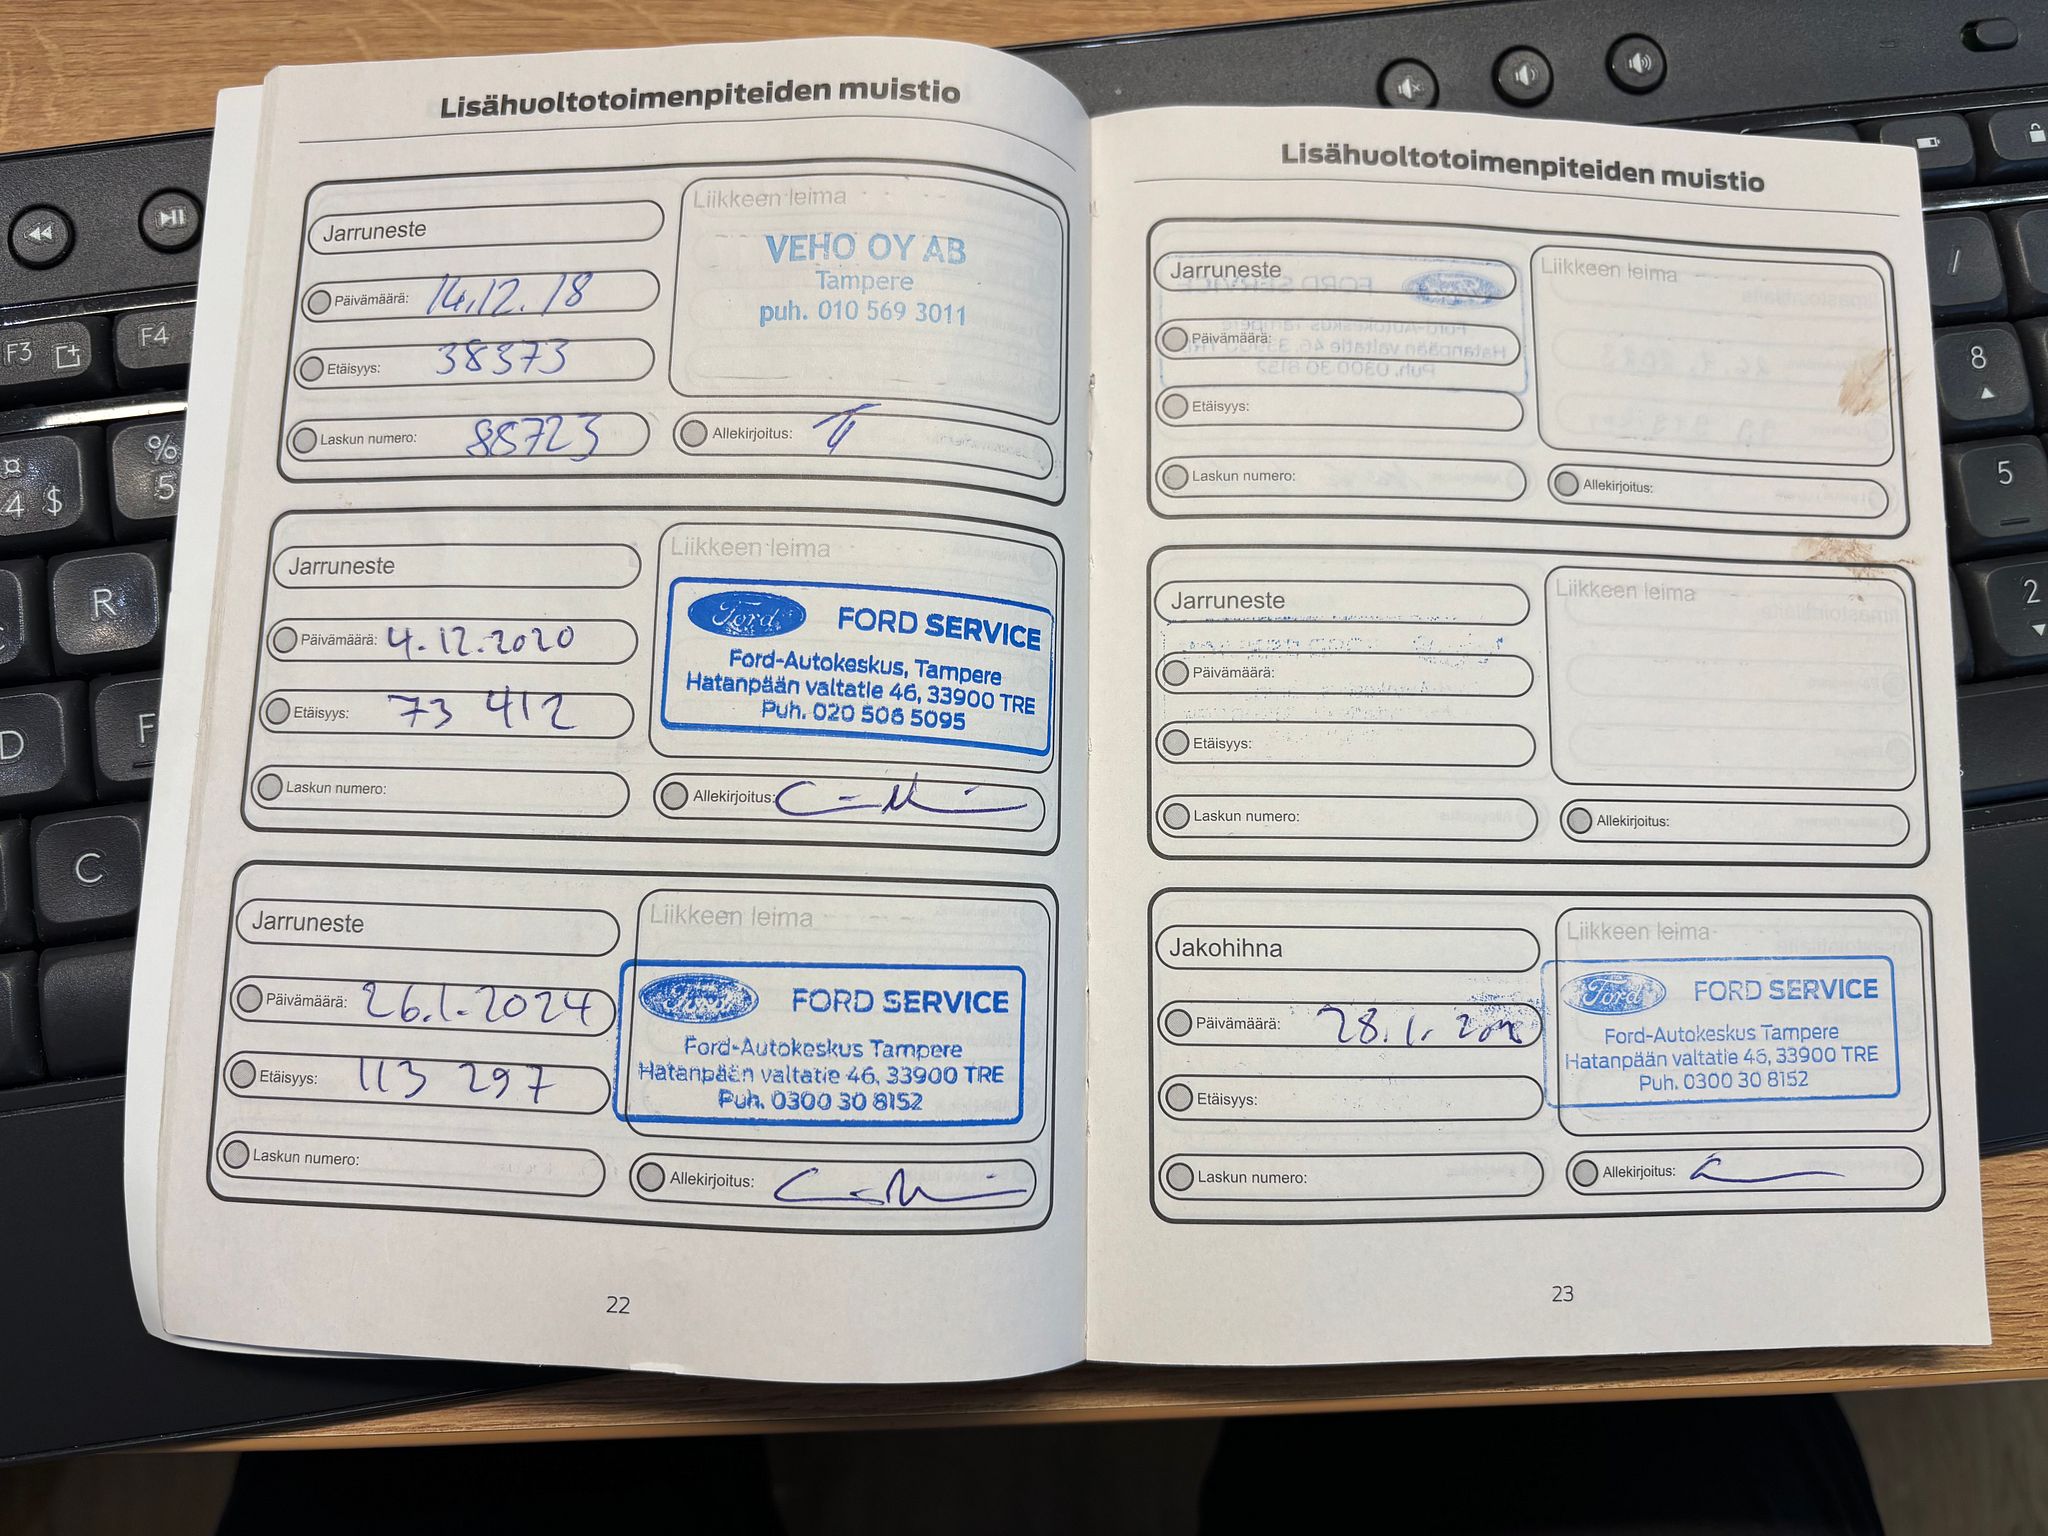 Lisähuoltotoimenpiteiden muistio
Jarruneste
Päivämäärä: 14.12.18
Etäisyys: 38373
Laskun numero: 88723
Liikkeen leima
VEHO OY AB
Tampere
puh. 010 569 3011
Allekirjoitus:
Jarruneste
Päivämäärä: 4.12.2020
Etäisyys: 73 412
Laskun numero:
Liikkeen leima
Ford FORD SERVICE
Ford-Autokeskus, Tampere
Hatanpään valtatie 46, 33900 TRE
Puh. 020 506 5095
Allekirjoitus:
Jarruneste
Päivämäärä: 26.1.2024
Etäisyys: 113 297
Laskun numero:
Liikkeen leima
Ford FORD SERVICE
Ford-Autokeskus Tampere
Hatanpään valtatie 46, 33900 TRE
Puh. 0300 30 8152
Allekirjoitus:
22
Lisähuoltotoimenpiteiden muistio
Jarruneste
Päivämäärä:
Etäisyys:
Laskun numero:
Liikkeen leima
Allekirjoitus:
Jarruneste
Päivämäärä:
Etäisyys:
Laskun numero:
Liikkeen leima
Allekirjoitus:
Jakohihna
Päivämäärä: 28.1.
Etäisyys:
Laskun numero:
Liikkeen leima
Ford FORD SERVICE
Ford-Autokeskus Tampere
Hatanpään valtatie 46, 33900 TRE
Puh. 0300 30 8152
Allekirjoitus:
23
F3
F4
¤
4 $
%
5
R
D
F
C
/
8
5
2